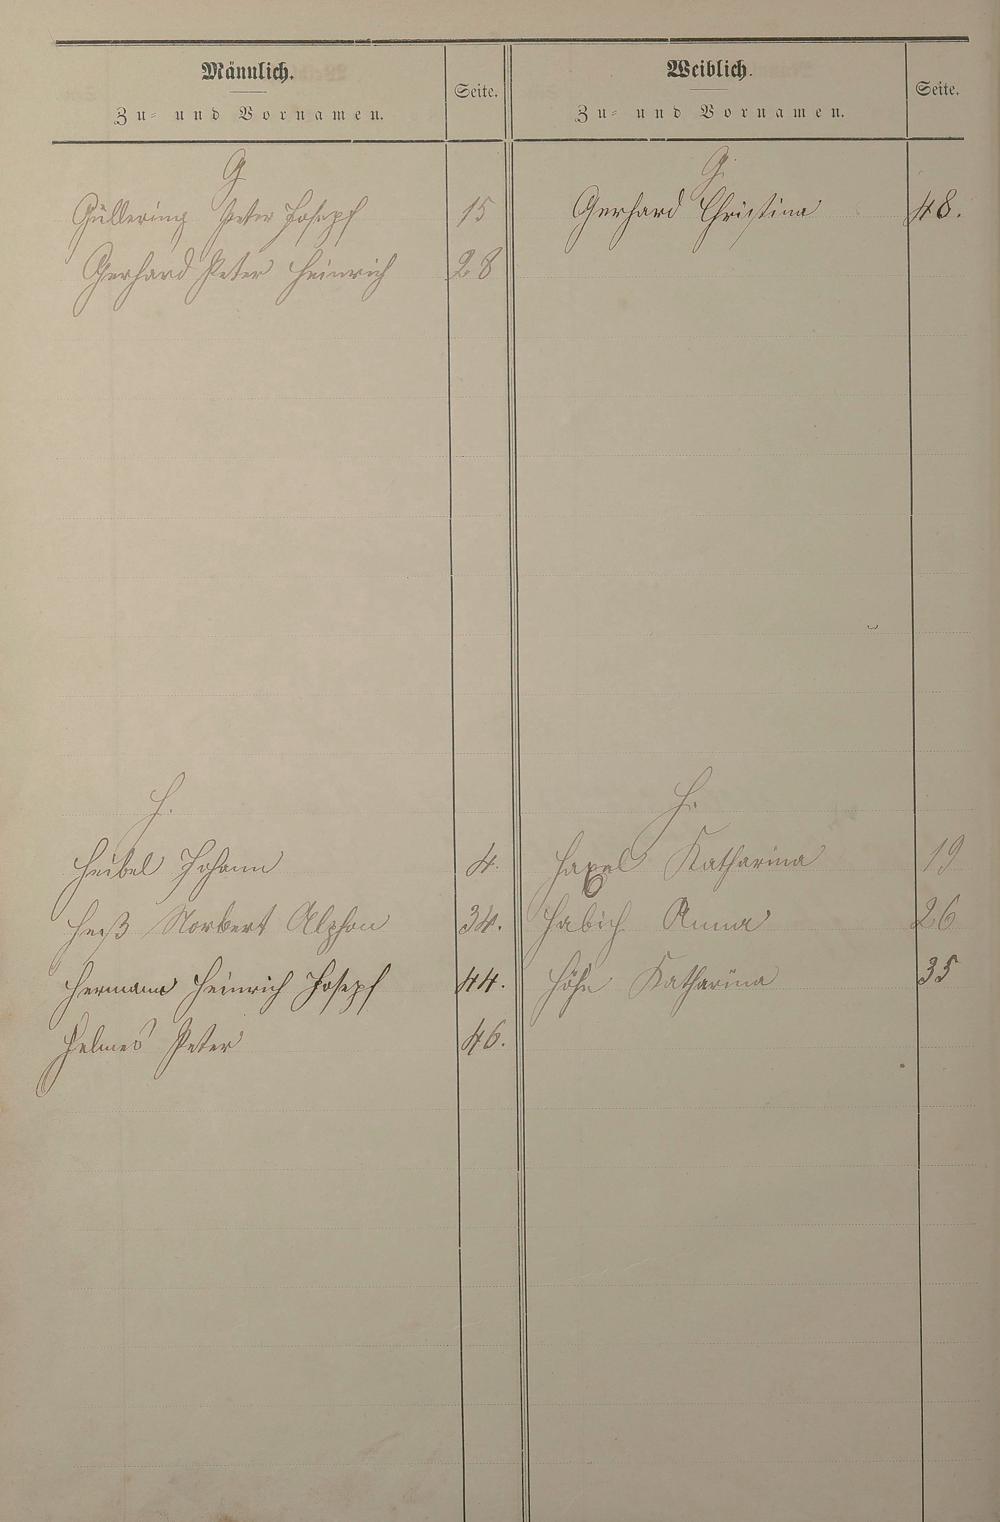 Männlich.
Zu- und Vornamen.
Seite.
G
Güllering Peter Joseph 15
Gerhard Peter Heinrich 28
H.
Heibel Johann 4.
Heiß Norbert Alphon 34.
Hermann Heinrich Joseph 44.
Helmes Peter 46.
Weiblich.
Zu- und Vornamen.
Seite.
G.
Gerhard Christina 48.
H.
Katharina 19
Habich Anna 26
Höhn Katharina 35